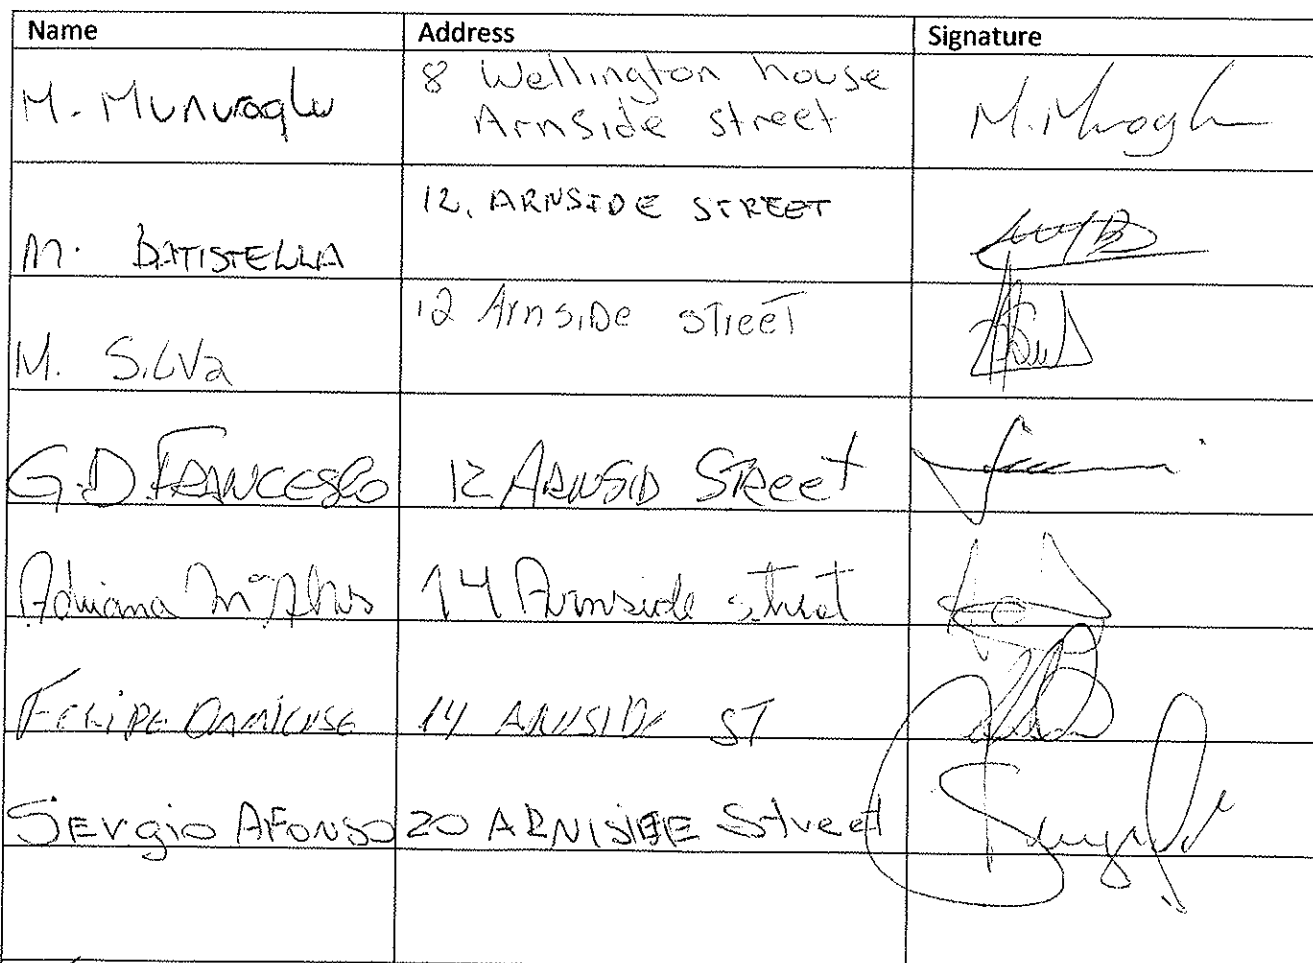 Name Address Signature
M. Munuroglu 8 Wellington house
Arnside street M. M
M. BATISTELLA 12, ARNSIDE STREET
M. Silva 12 Arnside street
G.D FRANCESCO 12 ARNSID STReet
Adriana 14 Arnside street
Felipe 14 ARNSIDE ST
Sergio AFONSO 20 ARNISIDE Street